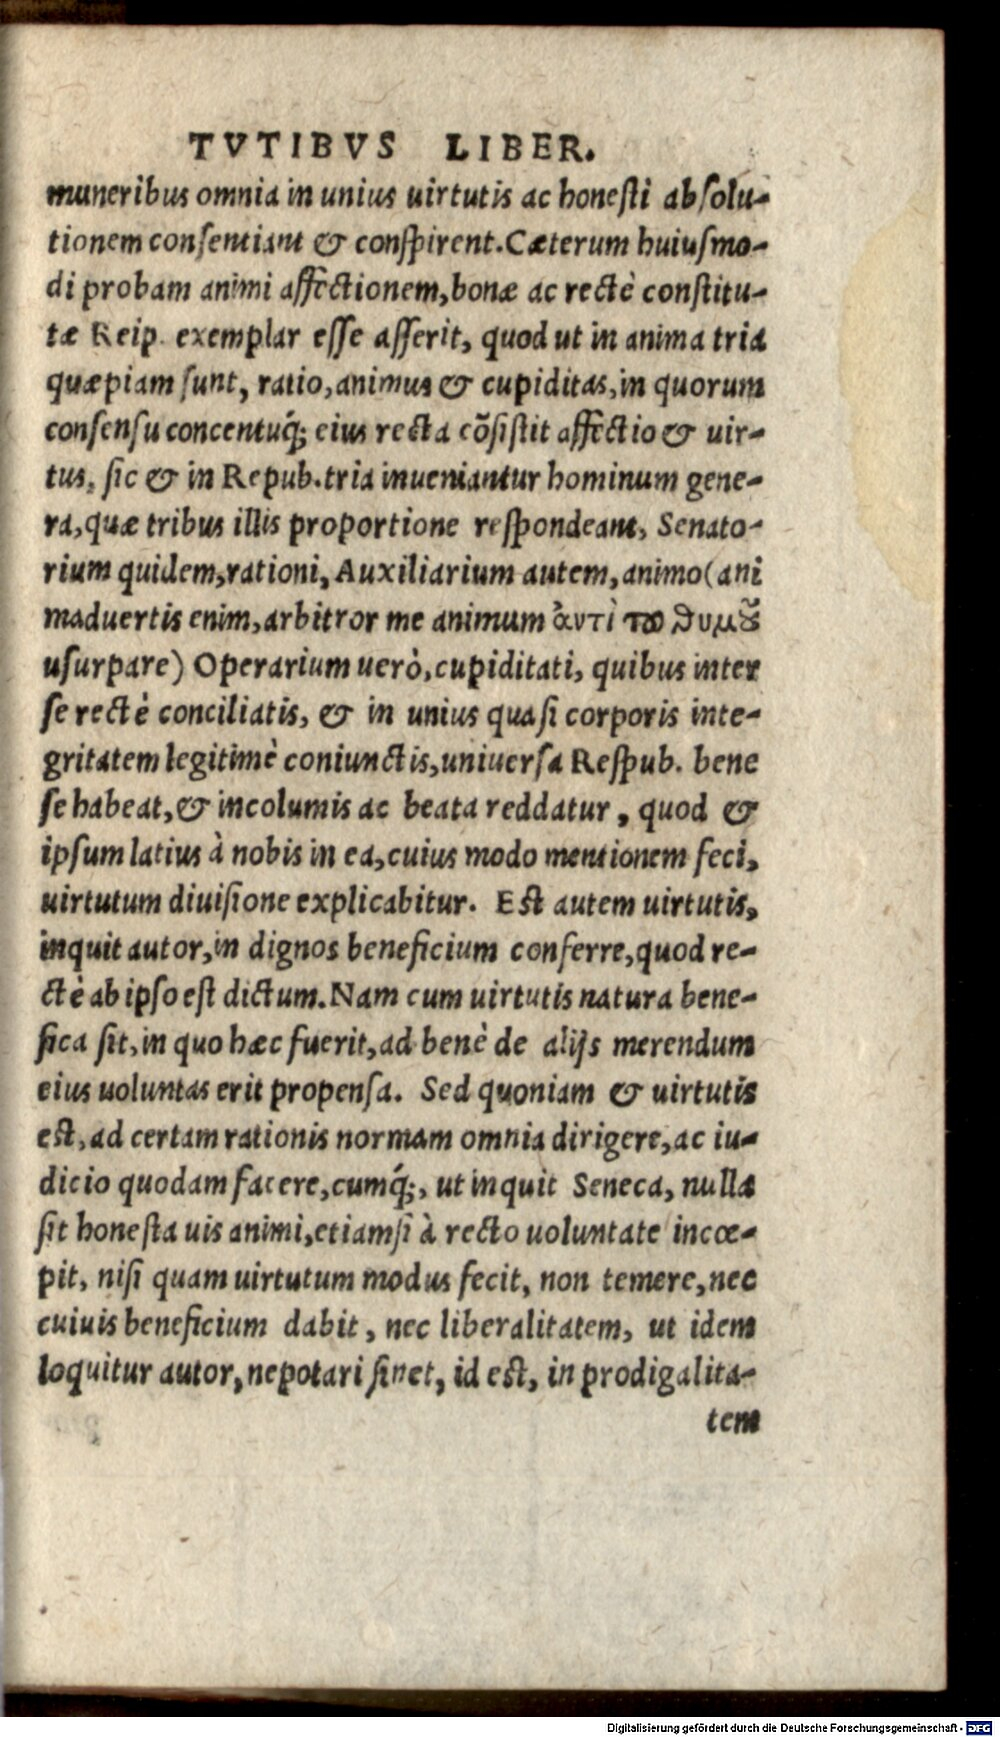 TVTIBVS LIBER.
muneribus omnia in unius uirtutis ac honesti absolu-
tionem consentiant & conspirent. Cæterum huiusmo-
di probam animi affectionem, bonæ ac rectè constitu-
tæ Reip. exemplar esse asserit, quod ut in anima tria
quæpiam sunt, ratio, animus & cupiditas, in quorum
consensu concentuq́; eius recta cõsistit affectio & uir-
tus, sic & in Repub. tria inueniantur hominum gene-
ra, quæ tribus illis proportione respondeant, Senato-
rium quidem, rationi, Auxiliarium autem, animo (ani
maduertis enim, arbitror me animum ἀντὶ τȣ ϑυμȣ͂
usurpare) Operarium uerò, cupiditati, quibus inter
se rectè conciliatis, & in unius quasi corporis inte-
gritatem legitimè coniunctis, uniuersa Respub. bene
se habeat, & incolumis ac beata reddatur, quod &
ipsum latius à nobis in ea, cuius modo mentionem feci,
uirtutum diuisione explicabitur. Est autem uirtutis,
inquit autor, in dignos beneficium conferre, quod re-
ctè ab ipso est dictum. Nam cum uirtutis natura bene-
fica sit, in quo hæc fuerit, ad benè de alijs merendum
eius uoluntas erit propensa. Sed quoniam & uirtutis
est, ad certam rationis normam omnia dirigere, ac iu-
dicio quodam facere, cumq́;, ut inquit Seneca, nulla
sit honesta uis animi, etiamsi à recto uoluntate incœ-
pit, nisi quam uirtutum modus fecit, non temere, nec
cuiuis beneficium dabit, nec liberalitatem, ut idem
loquitur autor, nepotari sinet, id est, in prodigalita-
tem
Digitalisierung gefördert durch die Deutsche Forschungsgemeinschaft - DFG